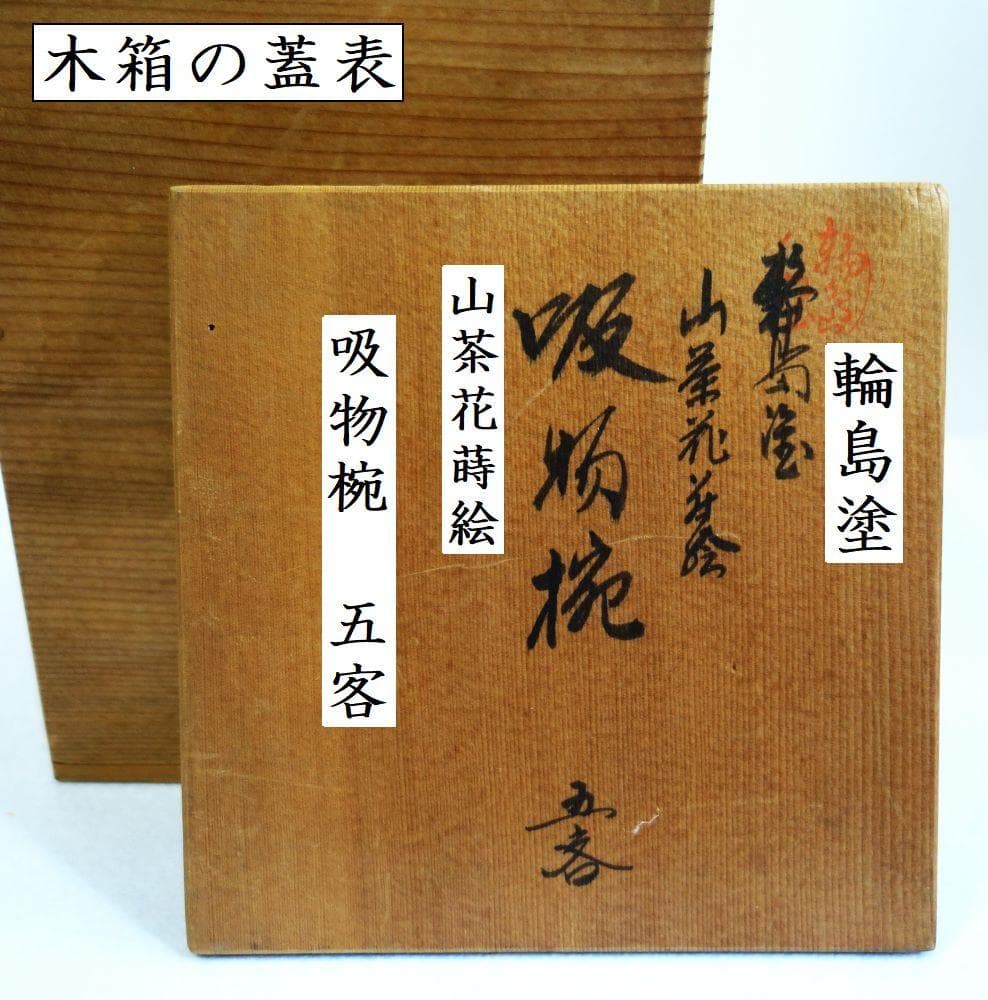 木箱の蓋表
輪島塗
輪島塗
山茶花蒔絵
吸物椀
五客
山茶花蒔絵
吸物椀 五客